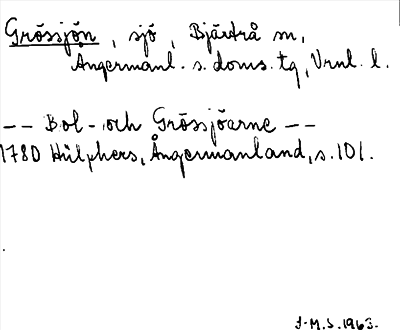 Grössjön, sjö, Bjärtrå sn,
Ångermanl. s. doms. tg, Vrnl. l.
-- Bol- och Grössjöarne --
1780 Hülphers, Ångermanland, s. 101.
J.M.S. 1963.